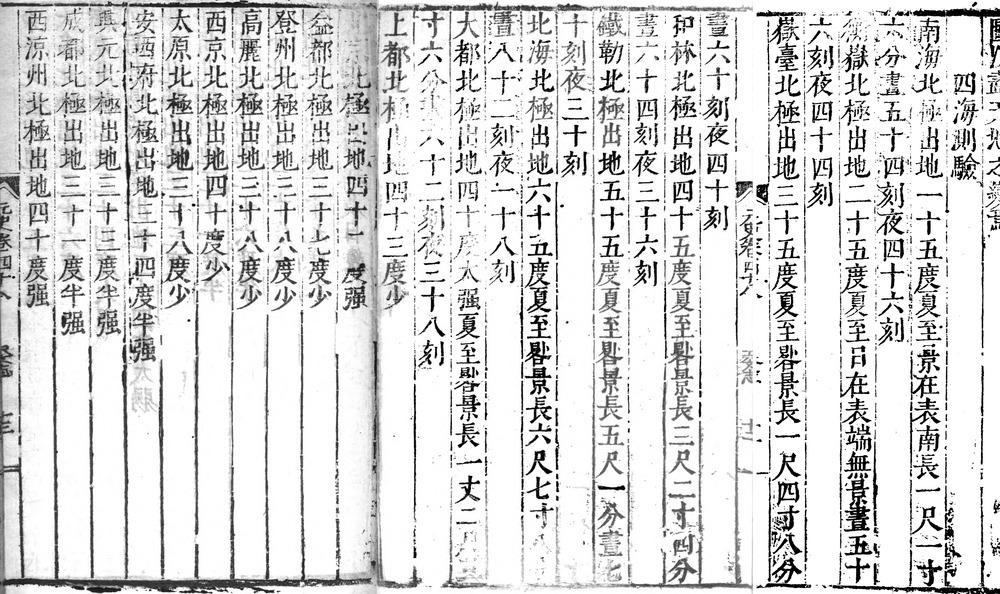 四海測驗
南海北極出地一十五度夏至景在表南長一尺一寸
六分晝五十四刻夜四十六刻
衡嶽北極出地二十五度夏至日在表端無景晝五十
六刻夜四十四刻
嶽臺北極出地三十五度夏至晷景長一尺四寸八分
晝六十刻夜四十刻
和林北極出地四十五度夏至晷景長三尺二寸四分
晝六十四刻夜三十六刻
鐵勒北極出地五十五度夏至晷景長五尺一分晝七
十刻夜三十刻
北海北極出地六十五度夏至晷景長六尺七寸八
晝八十二刻夜一十八刻
大都北極出地四十度太强夏至晷景長一丈二尺
寸六分晝六十二刻夜三十八刻
上都北極出地四十三度少
京北極出地四十二度强
益都北極出地三十七度少
登州北極出地三十八度少
高麗北極出地三十八度少
西京北極出地四十度少
太原北極出地三十八度少
安西府北極出地三十四度半强
興元北極出地三十三度半强
成都北極出地三十一度半强
西涼州北極出地四十度强